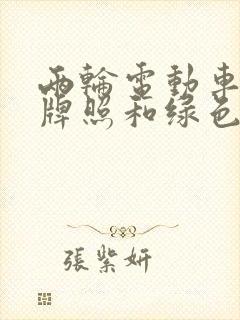 兩輪電動車
牌照和綠色
張紫妍